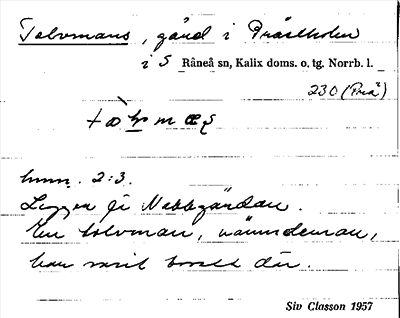 Tolvmans, gård i Prästholm
i S Råneå sn, Kalix doms. o. tg. Norrb. l.
230 (Prä)
hmn. 2:3.
Ligger på Nabbgärdan.
En tolvman, nämndeman,
har varit bosatt där.
Siv Classon 1957